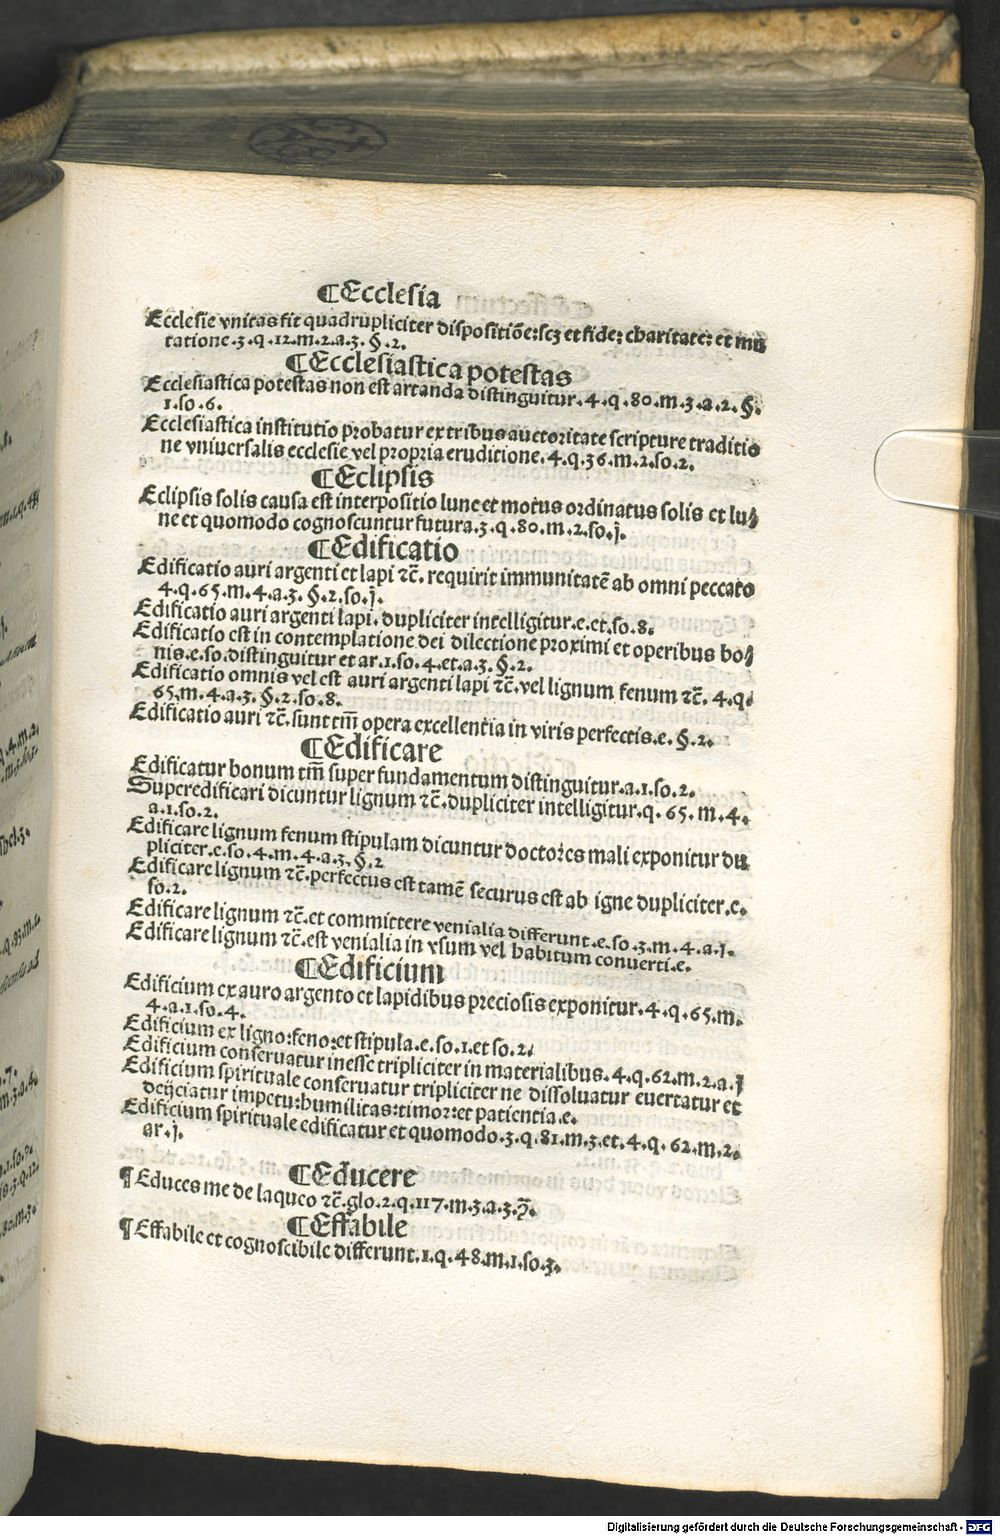 ¶Ecclesia
Ecclesie vnitas fit quadrupliciter dispositiōe:scꝫ et fide: charitate: et mu
tatione.3.q.12.m.2.a.3.§.2.
¶Ecclesiastica potestas
Ecclesiastica potestas non est artanda distinguitur.4.q.80.m.3.a.2.§.
1.so.6.
Ecclesiastica institutio probatur ex tribus auctoritate scripture traditio
ne vniuersalis ecclesie vel propria eruditione.4.q.36.m.2.so.2.
¶Eclipsis
Eclipsis solis causa est interpositio lune et motus ordinatus solis et lu⸗
ne et quomodo cognoscuntur futura.3.q.80.m.2.so.j.
¶Edificatio
Edificatio auri argenti et lapi ⁊c̄. requirit immunitatē ab omni peccato
4.q.65.m.4.a.3.§.2.so.j.
Edificatio auri argenti lapi. dupliciter intelligitur.e.et.so.8.
Edificatio est in contemplatione dei dilectione proximi et operibus bo⸗
nis.e.so.distinguitur et ar.1.so.4.et.a.3.§.2.
Edificatio omnis vel est auri argenti lapi ⁊c̄.vel lignum fenum ⁊c̄. 4.q.
65.m.4.a.3.§.2.so.8.
Edificatio auri ⁊c̄.sunt tm̄ opera excellentia in viris perfectis.e.§.2.
¶Edificare
Edificatur bonum tm̄ super fundamentum distinguitur.a.1.so.2.
Superedificari dicuntur lignum ⁊c̄.dupliciter intelligitur.q.65.m.4.
a.1.so.2.
Edificare lignum fenum stipulam dicuntur doctores mali exponitur du
pliciter.e.so.4.m.4.a.3.§.2
Edificare lignum ⁊c̄.perfectus est tamē securus est ab igne dupliciter.e.
so.2.
Edificare lignum ⁊c̄.et committere venialia differunt.e.so.3.m.4.a.j.
Edificare lignum ⁊c̄.est venialia in vsum vel habitum conuerti.e.
¶Edificium
Edificium ex auro argento et lapidibus preciosis exponitur.4.q.65.m.
4.a.1.so.4.
Edificium ex ligno:feno:et stipula.e.so.1.et so.2.
Edificium conseruatur inesse tripliciter in materialibus.4.q.62.m.2.a.j
Edificium spirituale conseruatur tripliciter ne dissoluatur euertatur et
deijciatur impetu:humilitas:timor:et patientia.e.
Edificium spirituale edificatur et quomodo.3.q.81.m.3.et.4.q.62.m.2.
ar.j.
¶Educere
¶Educes me de laqueo ⁊c̄.glo.2.q.117.m.3.a.3.
¶Effabile
¶Effabile et cognoscibile differunt.1.q.48.m.1.so.3.
Digitalisierung gefördert durch die Deutsche Forschungsgemeinschaft - DFG